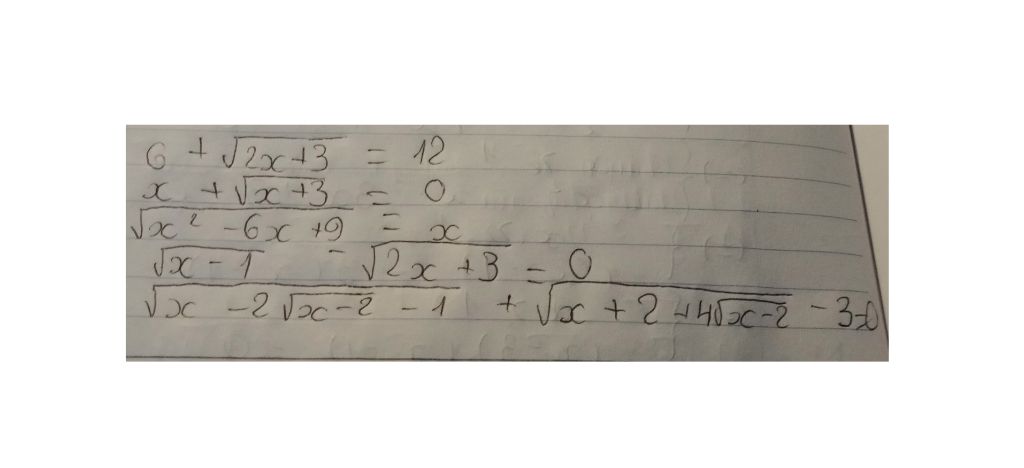 6 + √(2x+3) = 12
x + √(x+3) = 0
√(x² -6x +9) = x
√(x-1) - √(2x+3) = 0
√(x -2√(x-2) -1) + √(x+2+4√(x-2)) -3=0